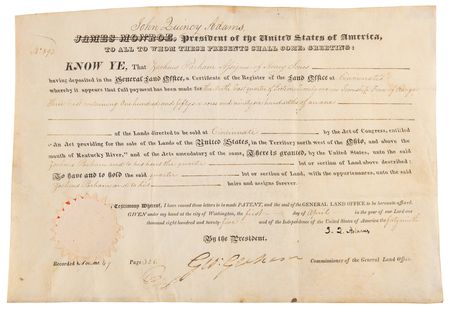 John Quincy Adams
JAMES MONROE, President of the United States of America,
TO ALL TO WHOM THESE PRESENTS SHALL COME, GREETING:
KNOW YE, That Joshua Parham Assignee of Henry
having deposited in the General Land Office, a Certificate of the Register of the Land Office at Cincinnati
whereby it appears that full payment has been made for the North East quarter of Section
Three East containing One hundred and fifty nine acres and ninety one hundredths of an acre
of the Lands directed to be sold at Cincinnati by the Act of Congress, entitled
"An Act providing for the sale of the Lands of the United States, in the Territory north west of the Ohio, and above the
mouth of Kentucky River," and of the Acts amendatory of the same, There is granted, by the United States, unto the said
Joshua Parham and to his heirs the quarter lot or section of Land above described:
To have and to hold the said quarter lot or section of Land, with the appurtenances, unto the said
Joshua Parham and to his heirs and assigns forever.
In Testimony Whereof, I have caused these letters to be made PATENT, and the seal of the GENERAL LAND OFFICE to be hereunto affixed.
GIVEN under my hand at the city of Washington, the first day of April in the year of our Lord one
thousand eight hundred and twenty five and of the Independence of the United States of America the forty ninth
J. Q. Adams
By the President.
Geo: Graham Commissioner of the General Land Office
Recorded Volume Page